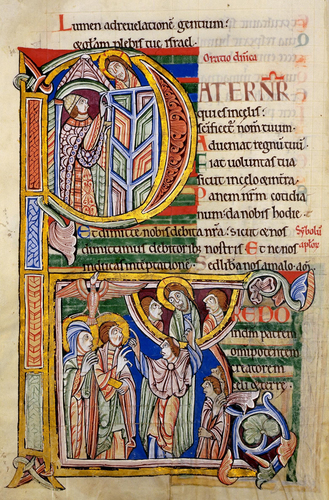 Lumen ad revelationē gentium:
glořam plebis tue israel.
Oratio dñica
PATER NR̄
qui es incelis:
scificet᷑ nom̄ tuum.
Adveniat regnū tuū
Fiat voluntas tua
sicut incelo & intra.
Panem nr̄m cotidia
num da nobis hodie.
Et dimitte nobis debita nr̄a: sicut & nos
dimittimus debitoribus nostris Et ne nos
inducas intēptatione: Sed libera nos amalo. am̄
Symbolū
aplor̄
CREDO
in dm̄ patrem
omnipotentem
creatorem
celi & terre